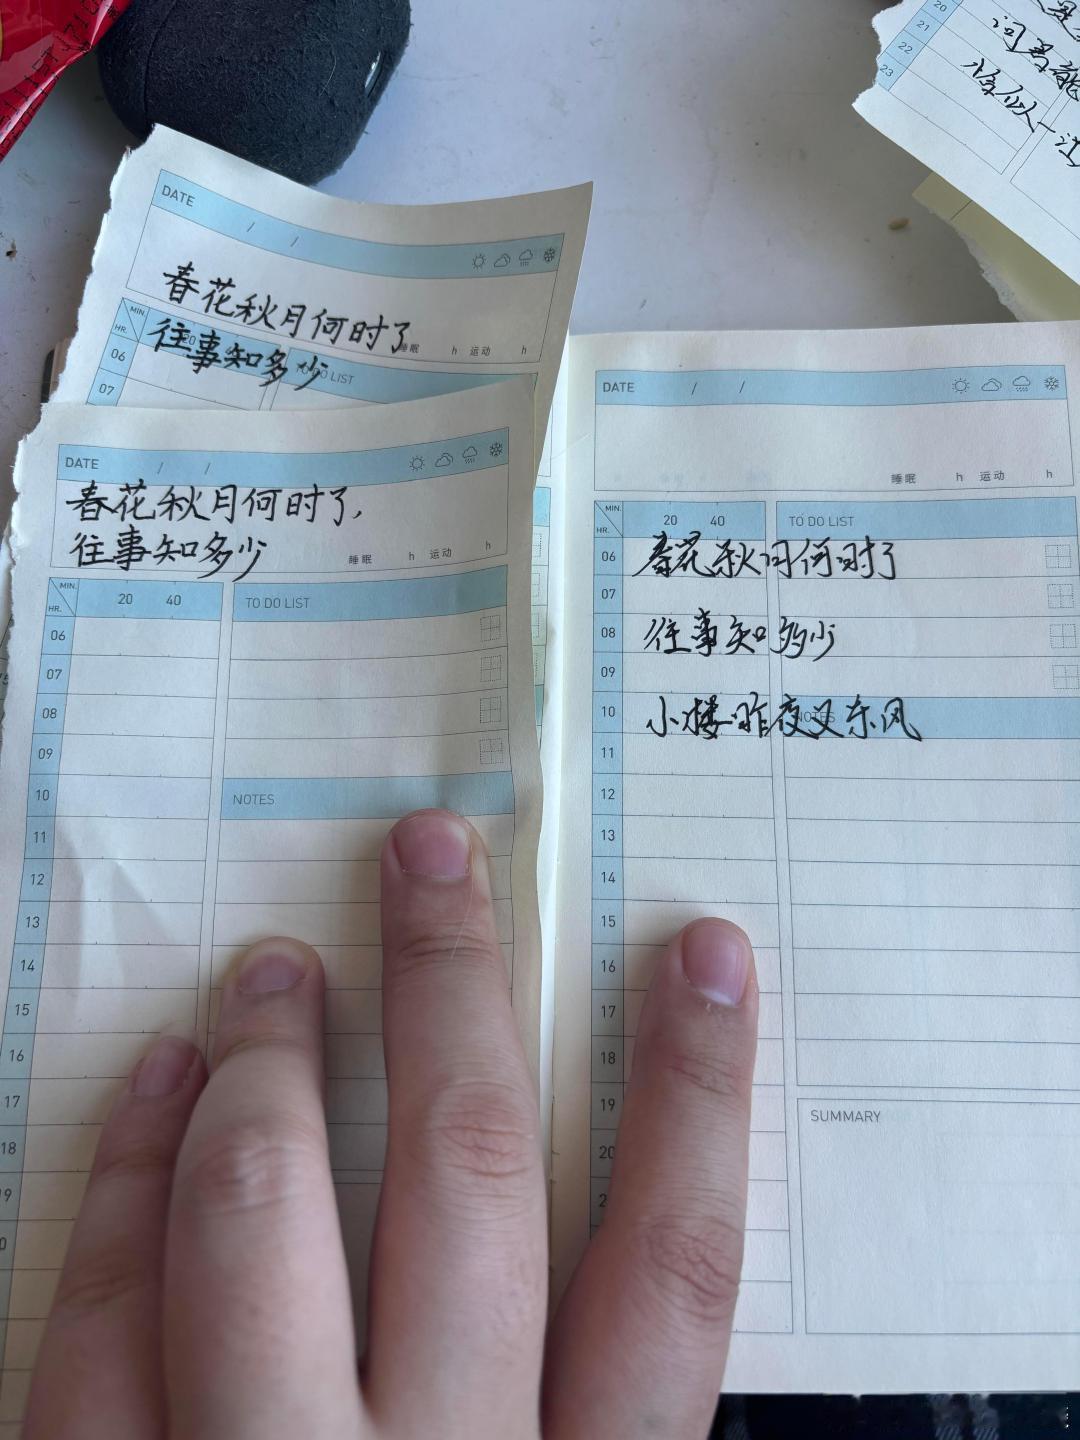 20
21
22
23
问君能
恰似一江
DATE / /
春花秋月何时了
睡眠 h 运动 h
往事知多少
MIN.
HR.
20
TO DO LIST
06
07
DATE / /
春花秋月何时了,
往事知多少
睡眠 h 运动 h
MIN.
HR.
20 40
TO DO LIST
06
07
08
09
10
NOTES
11
12
13
14
15
16
17
18
DATE / /
睡眠 h 运动 h
MIN.
HR.
20 40
TO DO LIST
06
春花秋月何时了
07
08
往事知多少
09
10
小楼昨夜又东风
NOTES
11
12
13
14
15
16
17
18
19
SUMMARY
20